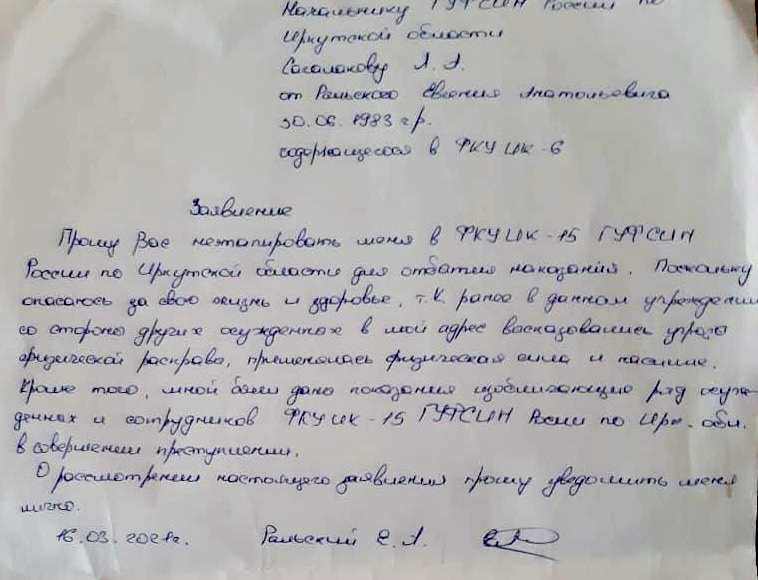 Начальнику ГУФСИН России по
Иркутской области
Сагалакову Л. А.
от Ральского Евгения Анатольевича
30.06.1983 г.р.
содержащегося в ФКУ ИК-6
Заявление
Прошу Вас не этапировать меня в ФКУ ИК-15 ГУФСИН
России по Иркутской области для отбатия наказания. Поскольку
опасаюсь за свою жизнь и здоровье, т.к. ранее в данном учреждении
со стороны других осужденнах в мой адрес васказавались угроза
физической расправа, применялась физическая сила и насилие.
Кроме того, мной бали дана показания изобличающие ряд осуж-
деннах и сотрудников ФКУ ИК-15 ГУФСИН Росии по Ирк. обл.
в совершении преступлении.
О рассмотрении настоящего заявления прошу уведомить меня
лично.
16.03.2021г. Ральский Е. А.